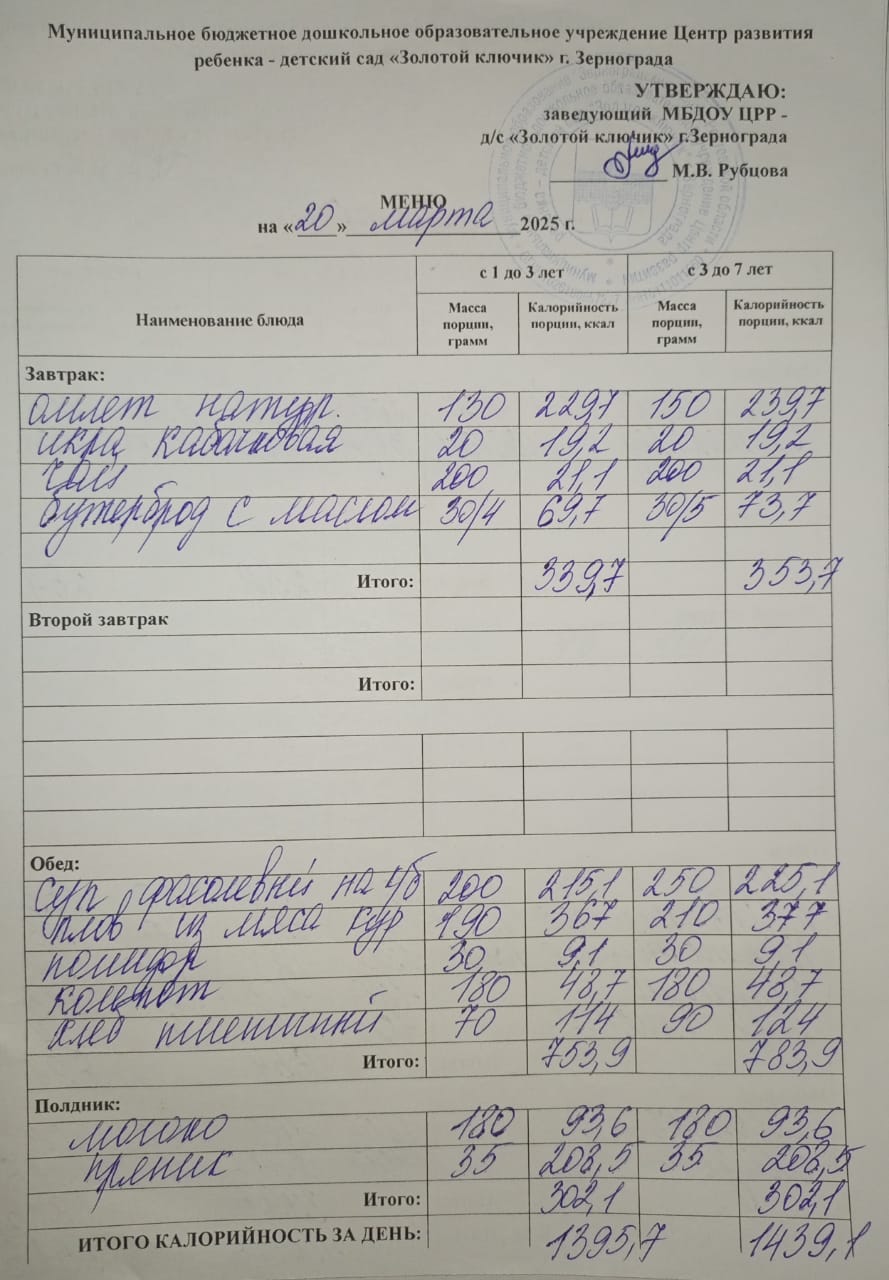 Муниципальное бюджетное дошкольное образовательное учреждение Центр развития
ребенка - детский сад «Золотой ключик» г. Зернограда
УТВЕРЖДАЮ:
заведующий МБДОУ ЦРР -
д/с «Золотой ключик» г.Зернограда
М.В. Рубцова
МЕНЮ
на «20» марта 2025 г.
Наименование блюда
с 1 до 3 лет
с 3 до 7 лет
Масса порции, грамм
Калорийность порции, ккал
Масса порции, грамм
Калорийность порции, ккал
Завтрак:
омлет натур. 130 229,7 150 239,7
икра кабачковая 20 19,2 20 19,2
чай 200 21,1 200 21,1
бутерброд с маслом 30/4 69,7 30/5 73,7
Итого: 339,7 353,7
Второй завтрак
Итого:
Обед:
суп фасолевый на к/б 200 215,1 250 225,1
плов из мяса кур 190 367 210 377
помидор 30 9,1 30 9,1
компот 180 48,7 180 48,7
хлеб пшеничный 70 114 90 124
Итого: 753,9 783,9
Полдник:
молоко 180 93,6 180 93,6
пряник 35 208,5 35 208,5
Итого: 302,1 302,1
ИТОГО КАЛОРИЙНОСТЬ ЗА ДЕНЬ: 1395,7 1439,1